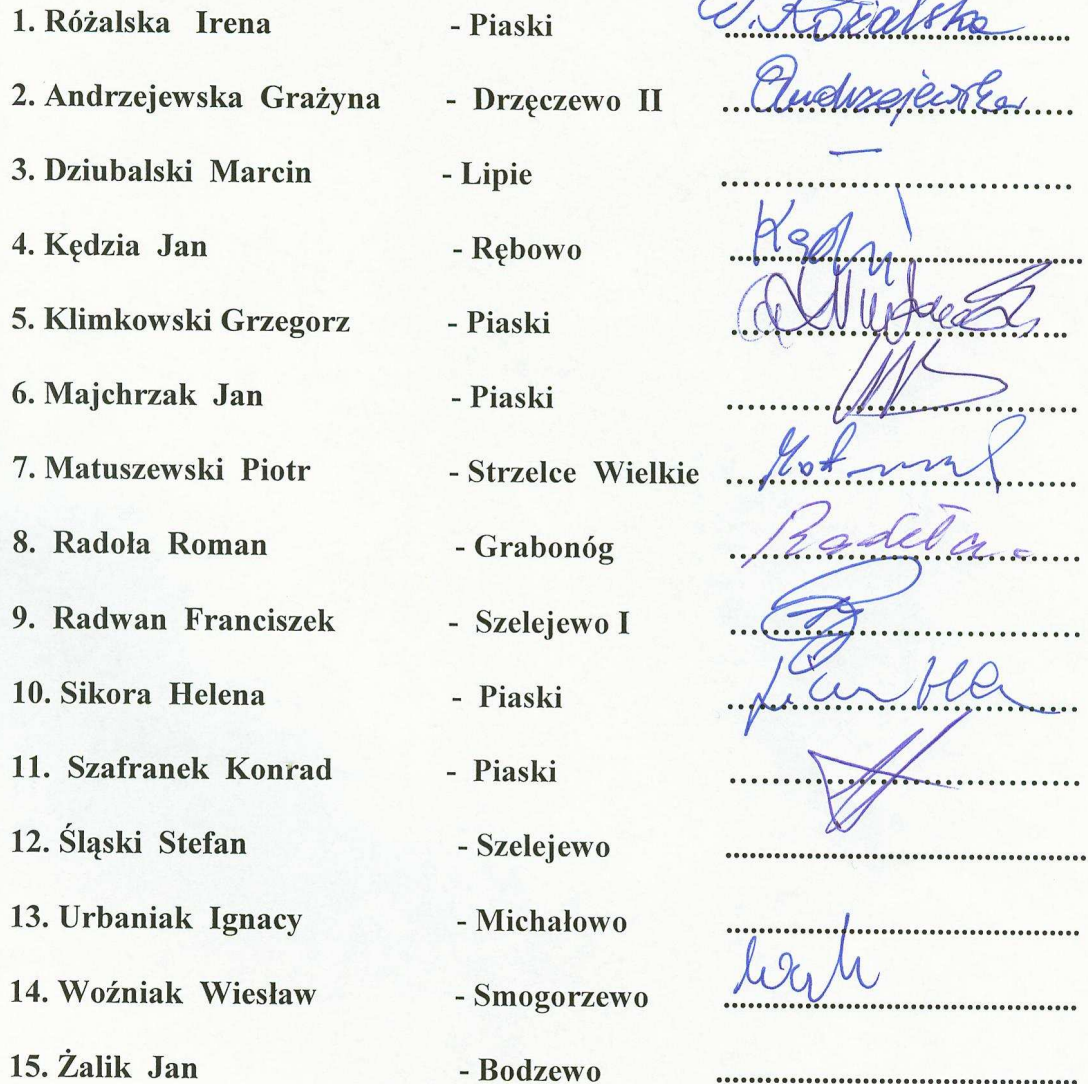 1. Różalska Irena - Piaski .......... Różalska
2. Andrzejewska Grażyna - Drzęczewo II .......... Andrzejewska
3. Dziubalski Marcin - Lipie — ..........
4. Kędzia Jan - Rębowo ..........
5. Klimkowski Grzegorz - Piaski ..........
6. Majchrzak Jan - Piaski ..........
7. Matuszewski Piotr - Strzelce Wielkie ..........
8. Radoła Roman - Grabonóg ..........
9. Radwan Franciszek - Szelejewo I ..........
10. Sikora Helena - Piaski ..........
11. Szafranek Konrad - Piaski ..........
12. Śląski Stefan - Szelejewo ..........
13. Urbaniak Ignacy - Michałowo ..........
14. Woźniak Wiesław - Smogorzewo ..........
15. Żalik Jan - Bodzewo ..........